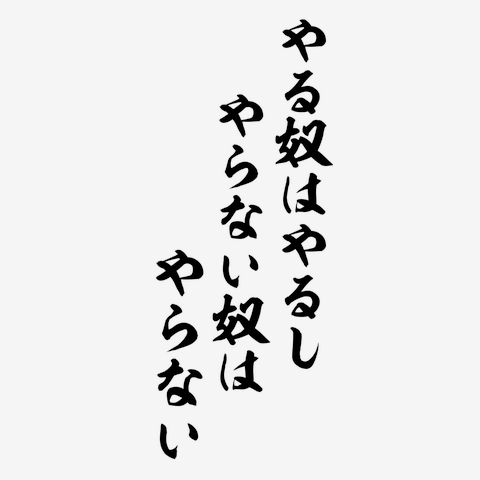 やる奴はやるし
やらない奴は
やらない